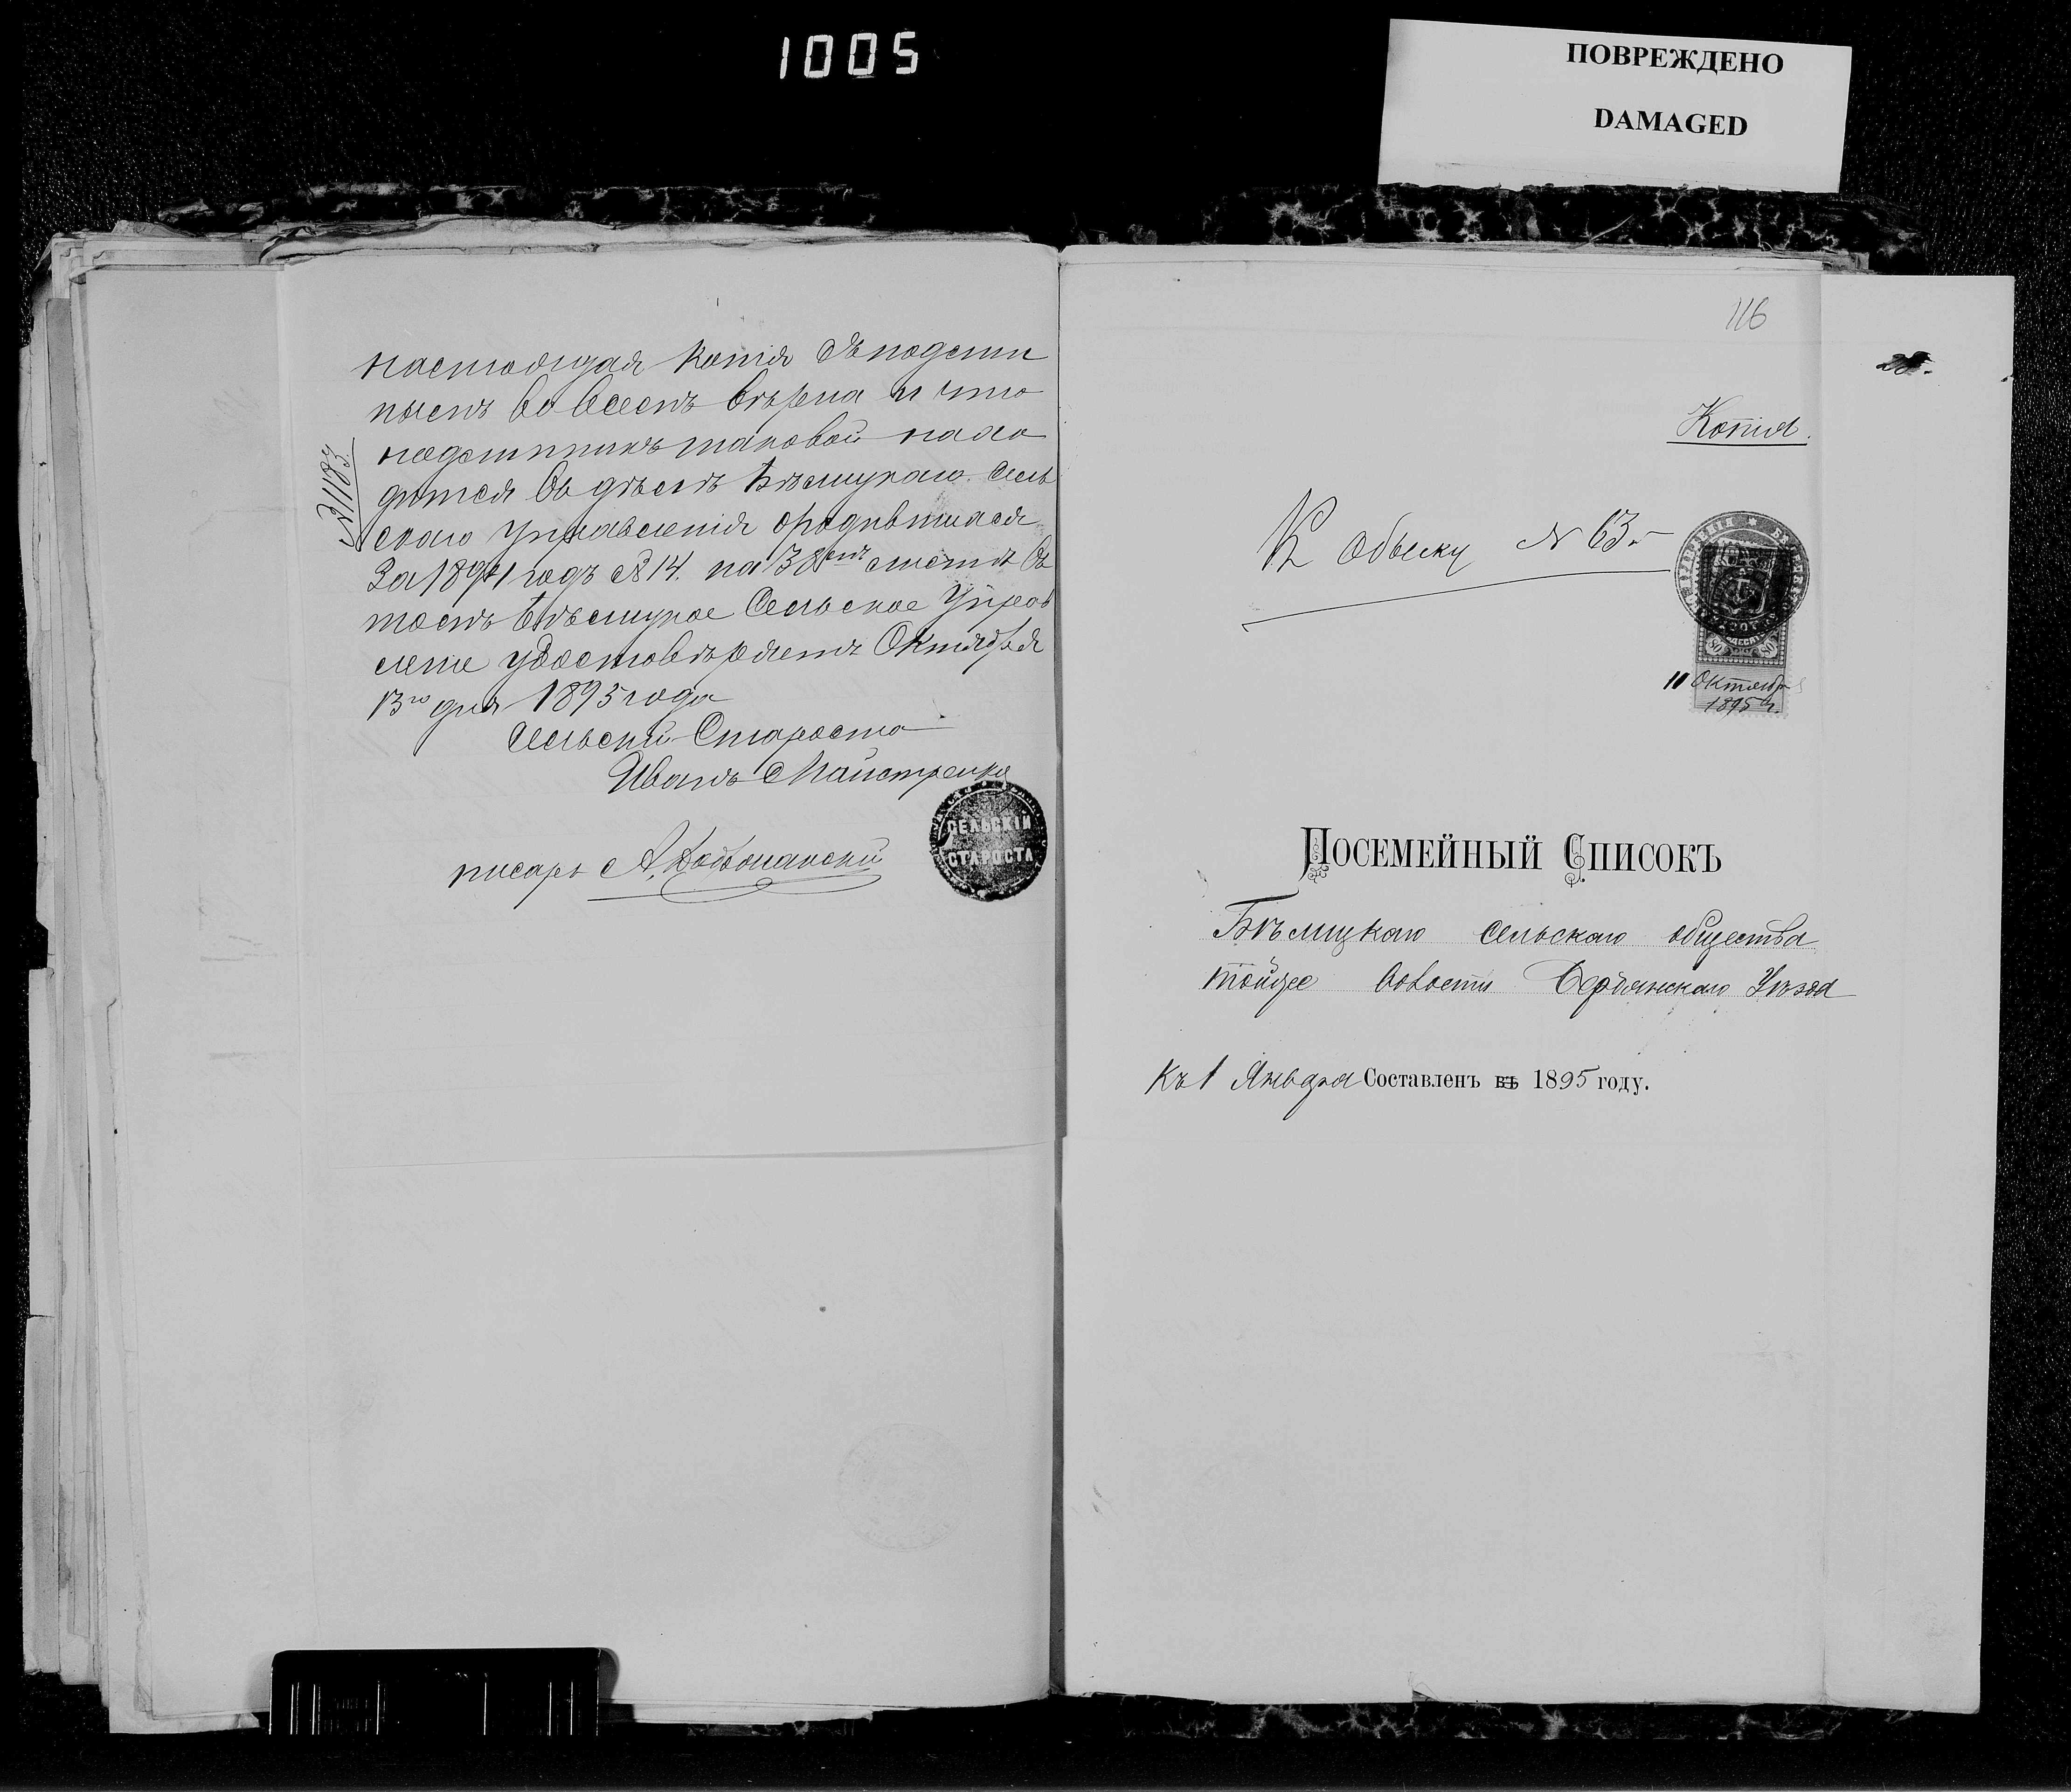 1005
ПОВРЕЖДЕНО
DAMAGED
настоящая копія съ подлин
нымъ во всемъ вѣрна и что
подлинникъ таковой нахо
дится въ дѣлѣ Бѣлицкаго Сель
скаго Управленія
за 1894 годъ № 14. на 38мъ листѣ въ
томъ Бѣлицкое Сельское Управ
леніе удостовѣряетъ Октября
13го дня 1895 года
№ 1183
Сельскій Староста
Иванъ Майстренко
СЕЛЬСКІЙ
СТАРОСТА
писарь А.
116
28.
Копія.
К обыску № 63й
80 80
11 Октября
1895 г.
ПОСЕМЕЙНЫЙ СПИСОКЪ
Бѣлицкаго сельскаго общества
тойже волости Бердянскаго Уѣзда
Къ 1 Января Составленъ въ 1895 году.